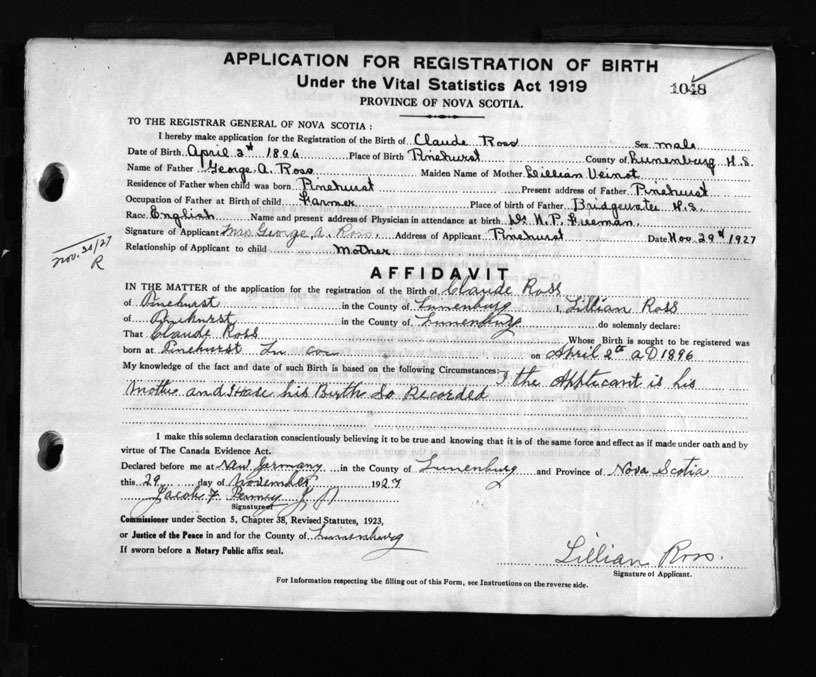 APPLICATION FOR REGISTRATION OF BIRTH
Under the Vital Statistics Act 1919
1048
PROVINCE OF NOVA SCOTIA.
TO THE REGISTRAR GENERAL OF NOVA SCOTIA :
I hereby make application for the Registration of the Birth of Claude Ross Sex male
Date of Birth April 2nd 1896 Place of Birth Pinehurst County of Lunenburg N.S.
Name of Father George A. Ross Maiden Name of Mother Lillian Veinot
Residence of Father when child was born Pinehurst Present address of Father Pinehurst
Occupation of Father at Birth of child Farmer Place of birth of Father Bridgewater N.S.
Race English Name and present address of Physician in attendance at birth Dr. N. P. Freeman
Signature of Applicant Mrs George A. Ross Address of Applicant Pinehurst Date Nov. 29th 1927
Relationship of Applicant to child Mother
R
AFFIDAVIT
IN THE MATTER of the application for the registration of the Birth of Claude Ross
of Pinehurst in the County of Lunenburg I, Lillian Ross
of Pinehurst in the County of Lunenburg do solemnly declare:
That Claude Ross Whose Birth is sought to be registered was
born at Pinehurst Lun co on April 2th AD 1896
My knowledge of the fact and date of such Birth is based on the following Circumstances:— I the Applicant is his
Mother and I have his Birth So Recorded
I make this solemn declaration conscientiously believing it to be true and knowing that it is of the same force and effect as if made under oath and by
virtue of The Canada Evidence Act.
Declared before me at New Germany in the County of Lunenburg and Province of Nova Scotia
this 29 day of November 1927
Jacob F Penney J P
Signature of
Commissioner under Section 5, Chapter 38, Revised Statutes, 1923,
or Justice of the Peace in and for the County of Lunenburg
If sworn before a Notary Public affix seal.
Lillian Ross.
Signature of Applicant.
For Information respecting the filling out of this Form, see Instructions on the reverse side.